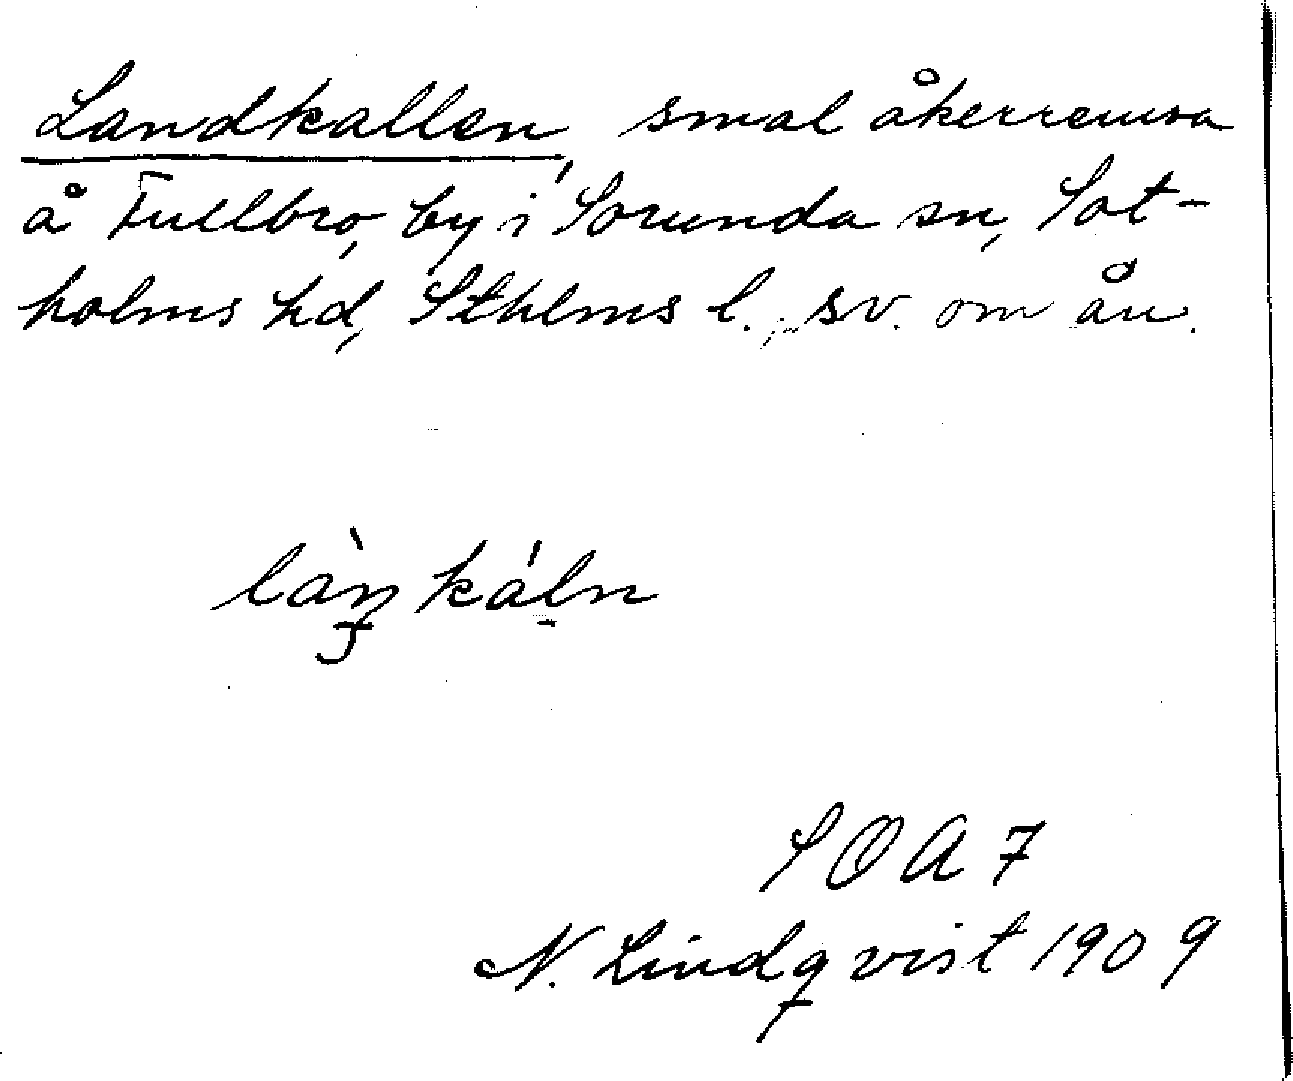 Landkallen, smal åkerremsa
å Fullbro, by i Sorunda sn, Sot-
holms hd, Sthlms l., sv. om ån.
làŋkáln
SOA 7
N. Lindqvist 1909